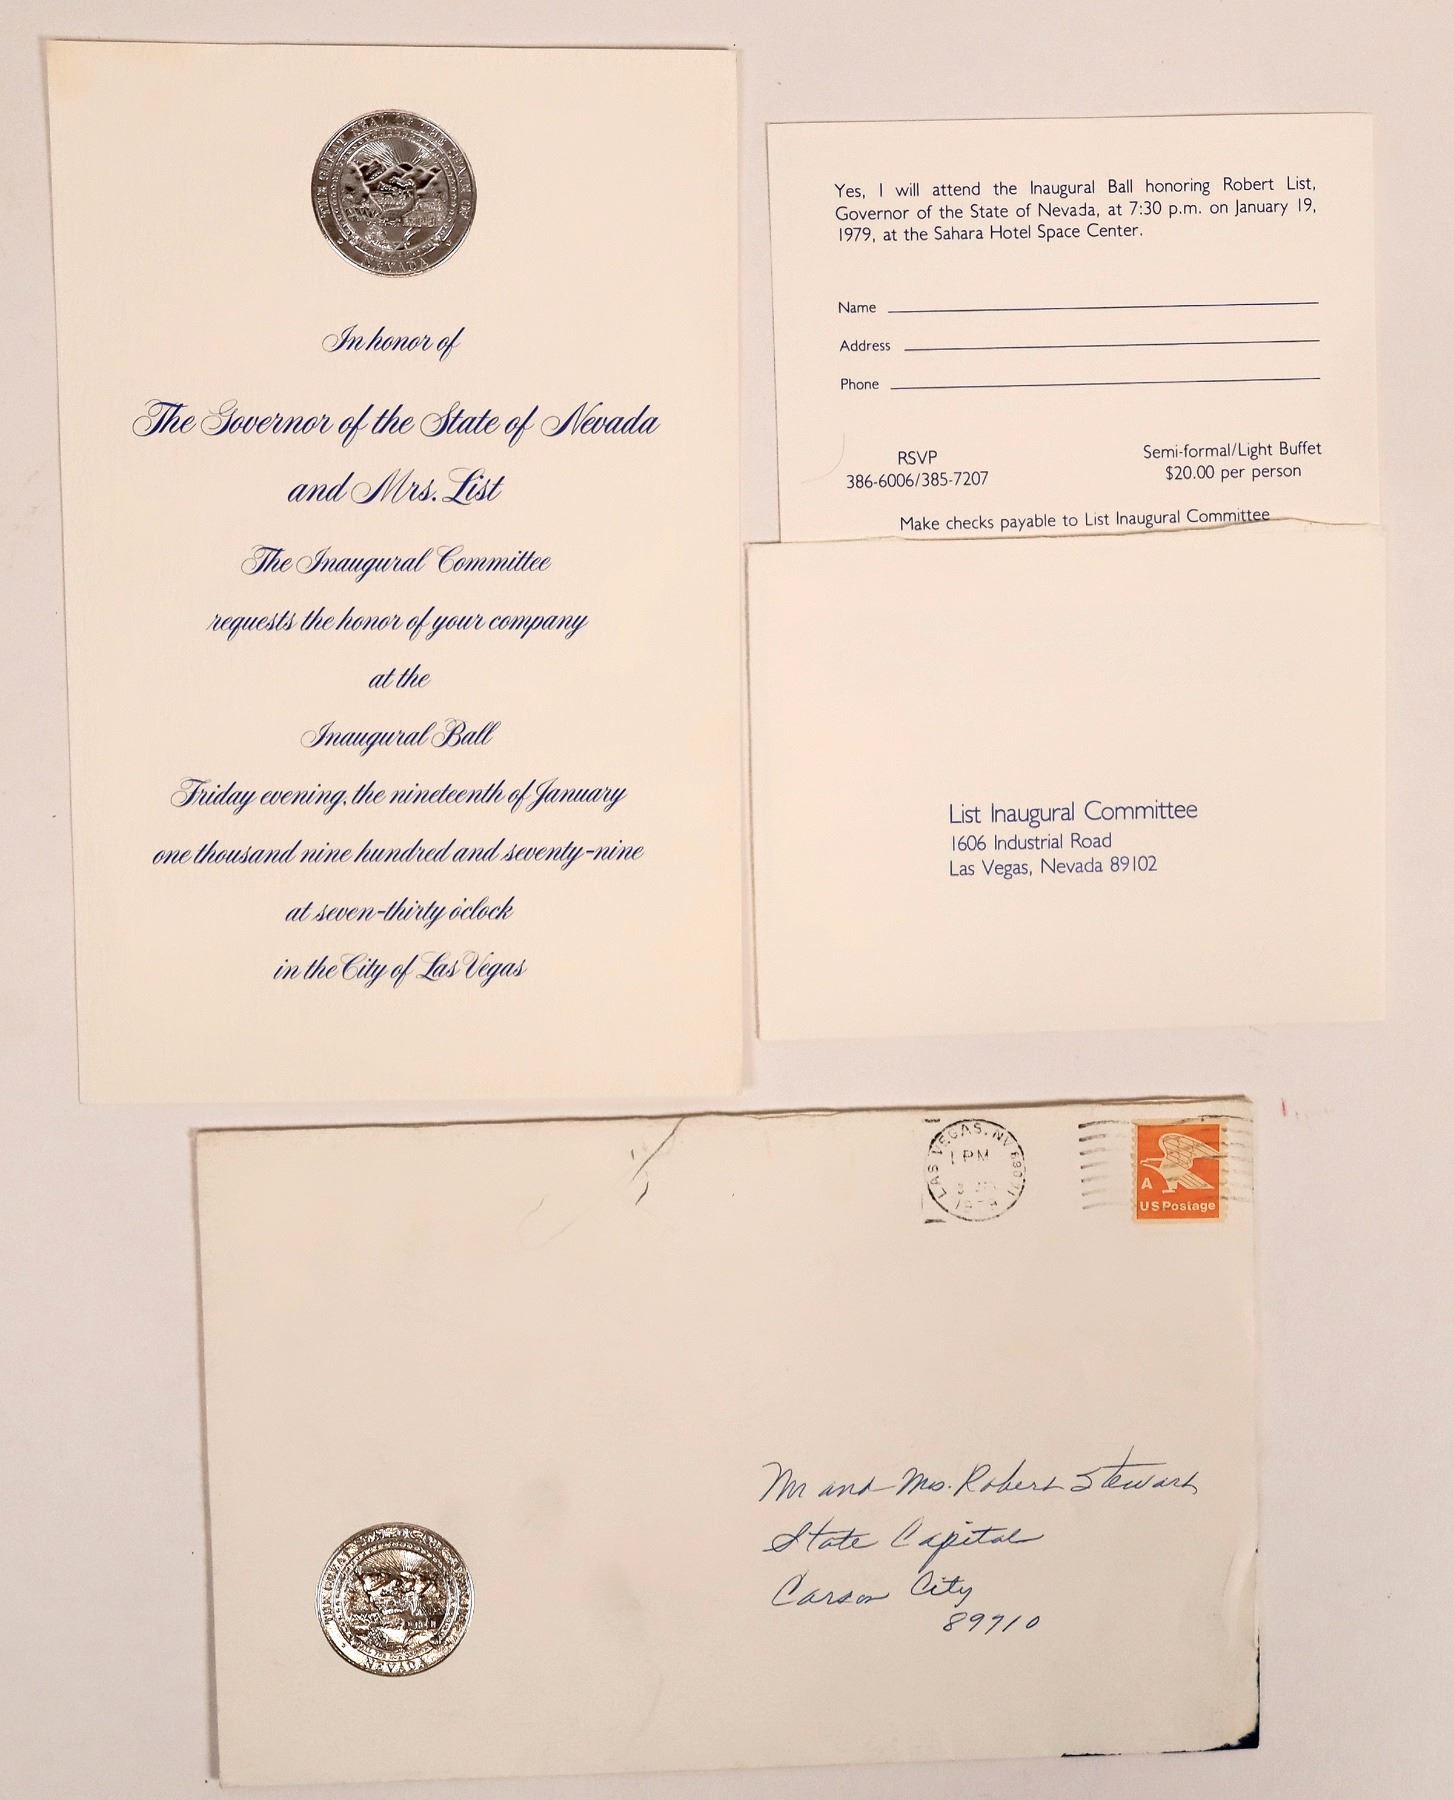 THE GREAT SEAL OF THE STATE OF
NEVADA
In honor of
The Governor of the State of Nevada
and Mrs. List
The Inaugural Committee
requests the honor of your company
at the
Inaugural Ball
Friday evening, the nineteenth of January
one thousand nine hundred and seventy-nine
at seven-thirty o'clock
in the City of Las Vegas
Yes, I will attend the Inaugural Ball honoring Robert List,
Governor of the State of Nevada, at 7:30 p.m. on January 19,
1979, at the Sahara Hotel Space Center.
Name
Address
Phone
RSVP
386-6006/385-7207
Semi-formal/Light Buffet
$20.00 per person
Make checks payable to List Inaugural Committee
List Inaugural Committee
1606 Industrial Road
Las Vegas, Nevada 89102
LAS VEGAS, NV
1 PM
A
US Postage
Mr and Mrs. Robert Stewart
State Capitol
Carson City
89710
THE GREAT SEAL OF THE STATE OF
NEVADA